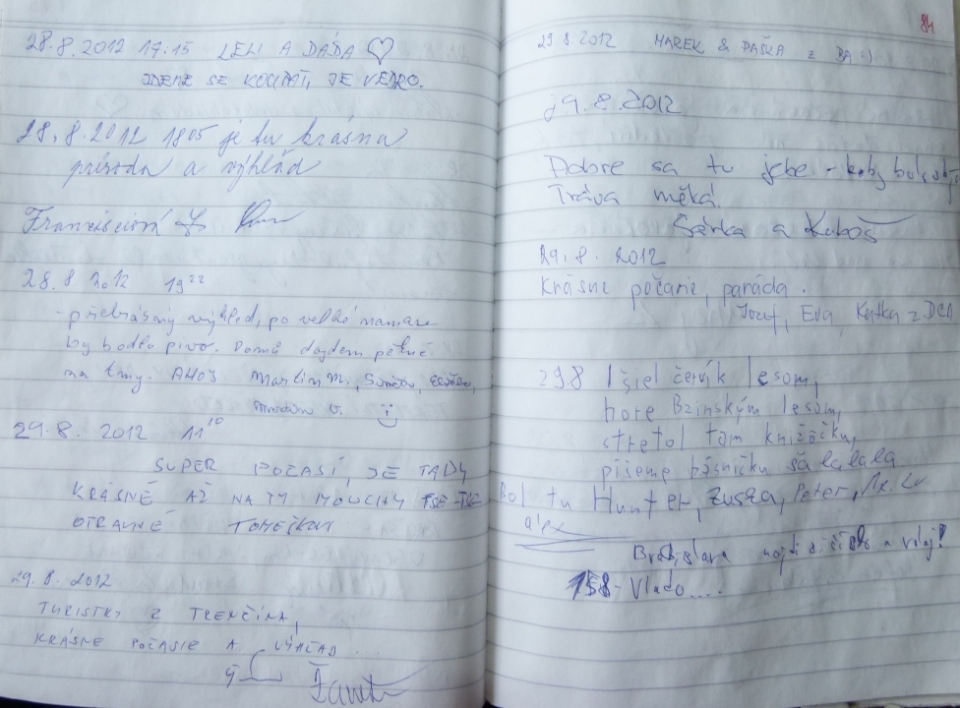 28.8.2012 17:15 LELI A DÁĎA
JDEME SE KOUPAT, JE VEDRO.
28.8.2012 1805 je tu krásna
príroda a výhlád
28.8 2012 19²²
- překrásný výhled, po velké námaze
by bodlo pivo. Domů dojdem pěkně
na tmy. AHOJ Martin M.,
29.8. 2012 11¹⁰
SUPER POČASÍ, JE TADY
KRÁSNĚ AŽ NA TY MOUCHY TSE-TSE
OTRAVNÉ TOMEČKOVI
29.8. 2012
TURISTKY Z TRENČÍNA,
KRÁSNE POČASIE A VÝHĽAD
84
29.8.2012 MAREK & DAŠKA z BA :)
29.8.2012
Dobre sa tu jebe - keby bola
Tráva měká.
Sárka a Kuboš
29.8. 2012
Krásne počasie, paráda.
Jozef, Eva, Katka z DCA
29.8 Išiel červík lesom,
hore Bzinským lesom,
stretol tam knižôčku,
píšeme básničku šalalala
Bol tu Hunter, Zuska, Peter,
Bratislava
158 - Vlado....